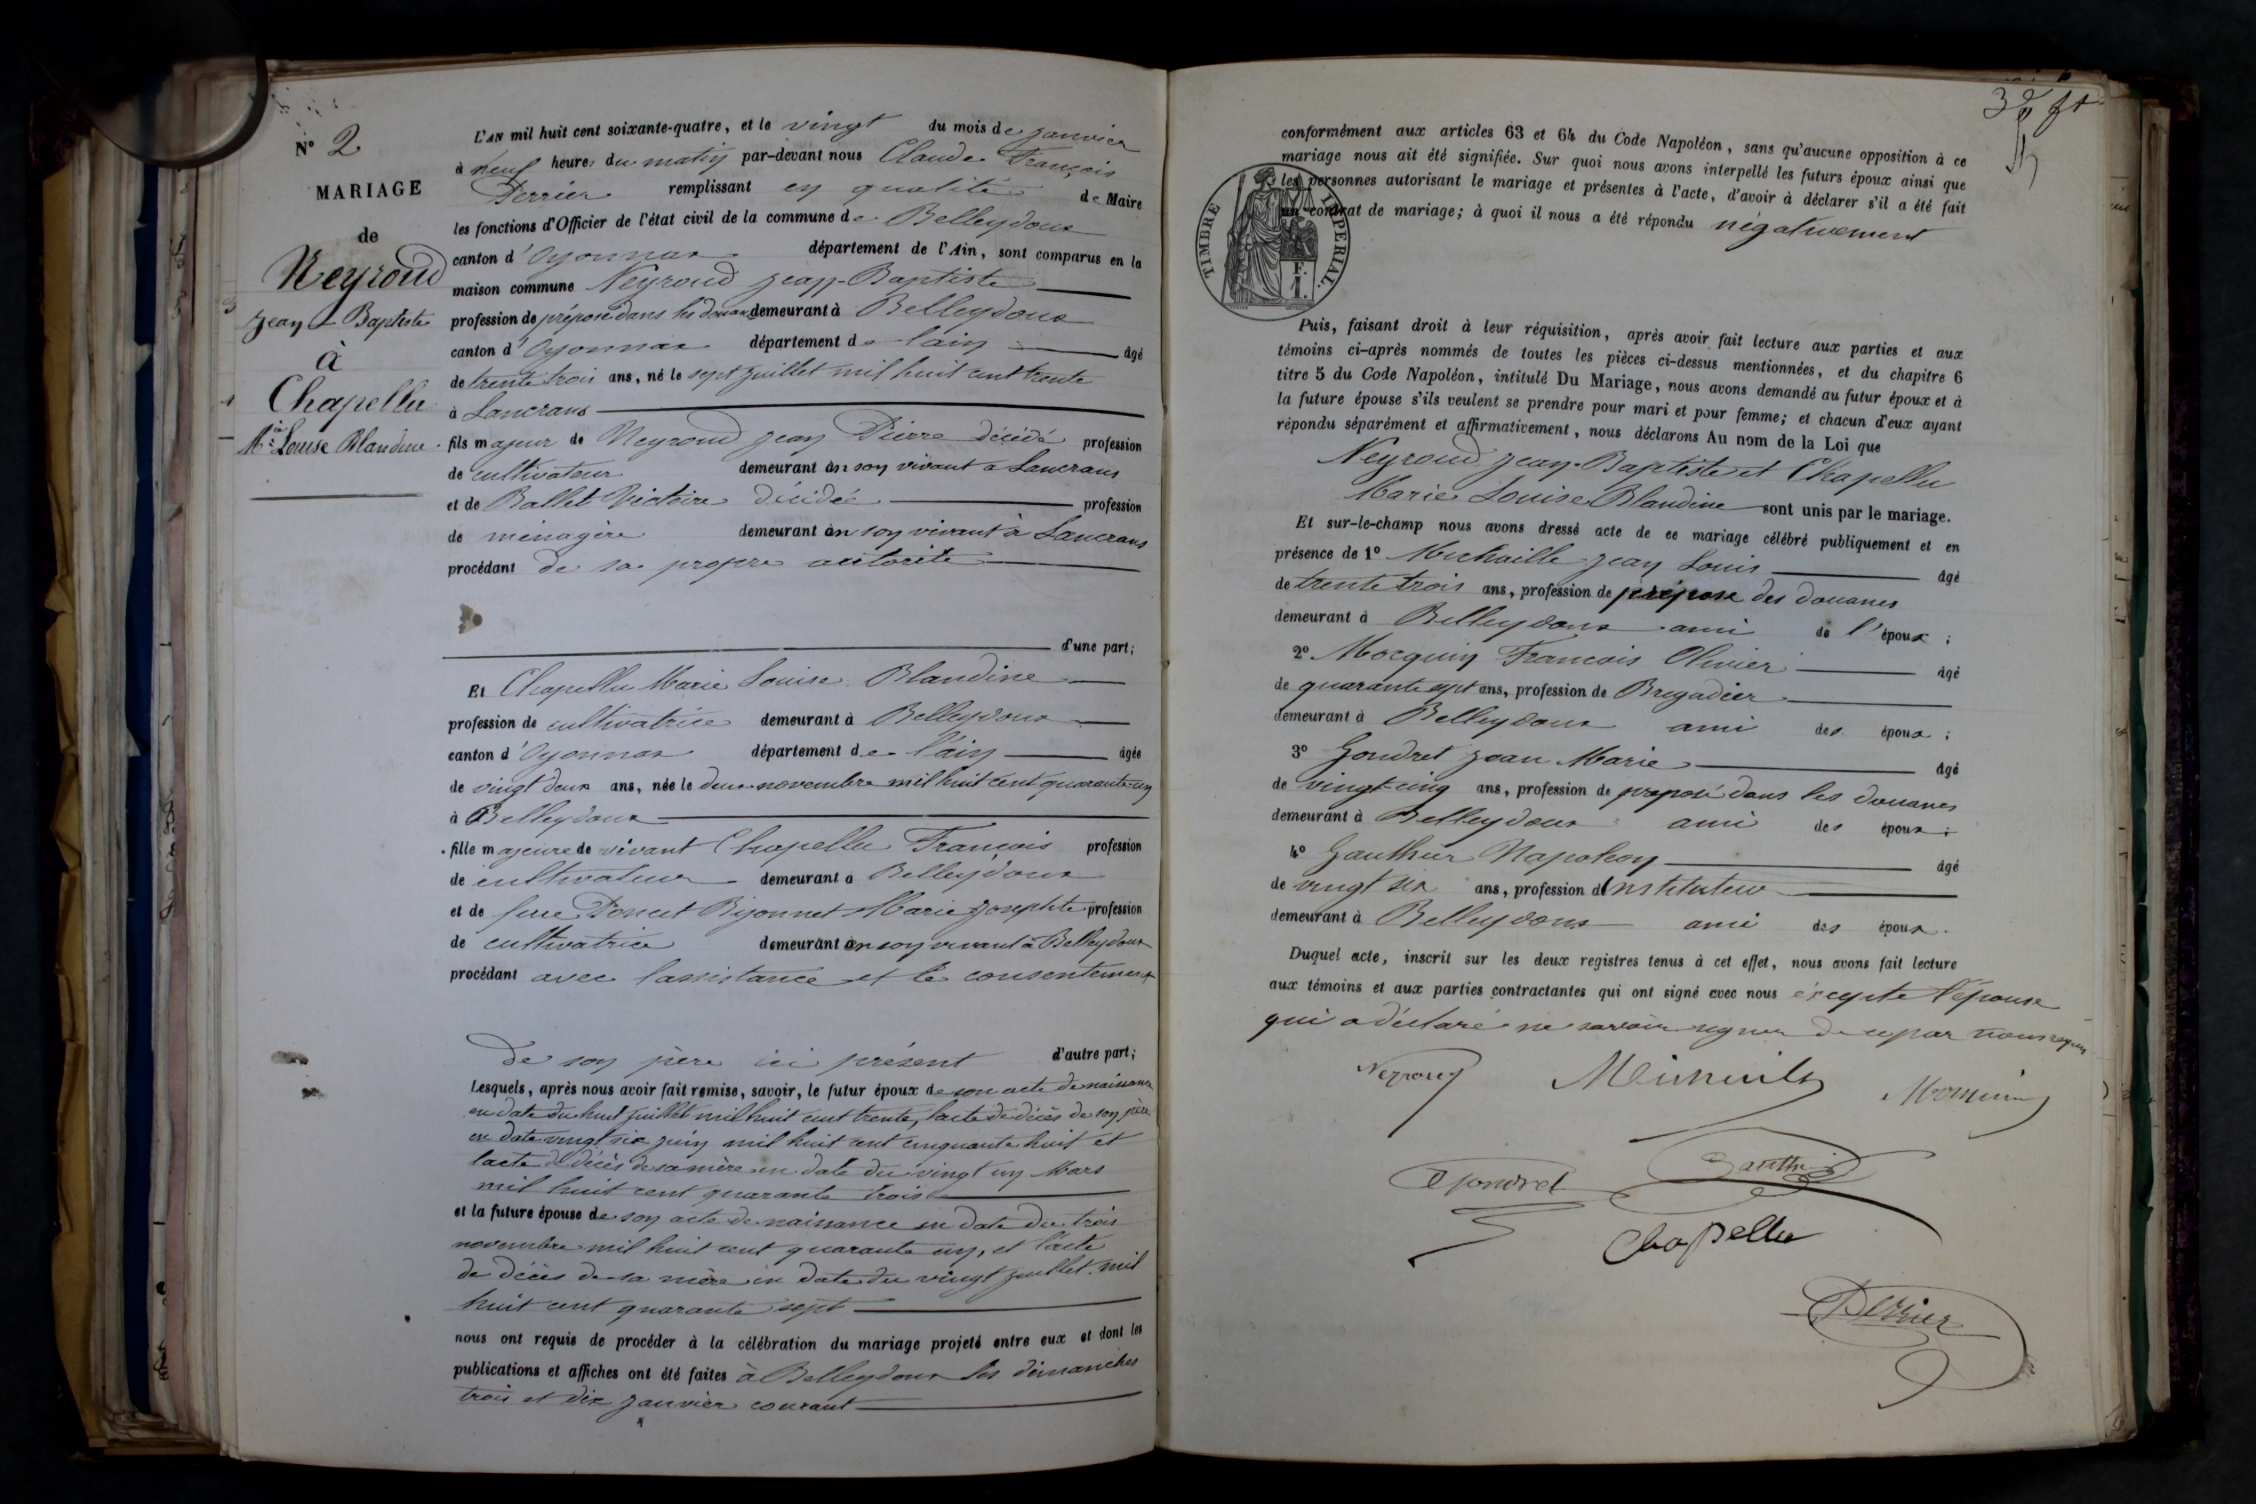 N° 2
MARIAGE
de
Neyroud
Jean-Baptiste
à
Chapellu
Mie Louise Blandine
L'AN mil huit cent soixante-quatre, et le vingt du mois de janvier
à neuf heures du matin par-devant nous Claude François
Perrier remplissant en qualité de Maire
les fonctions d'Officier de l'état civil de la commune de Belleydoux
canton d'Oyonnax département de l'Ain, sont comparus en la
maison commune Neyroud Jean-Baptiste
profession de préposé dans les douanes demeurant à Belleydoux
canton d'Oyonnax département de l'ain âgé
de trente trois ans, né le sept juillet mil huit cent trente
à Lancrans
fils majeur de Neyroud Jean Pierre décédé profession
de cultivateur demeurant en son vivant à Lancrans
et de Ballet Victoire décidée profession
de ménagère demeurant en son vivant à Lancrans
procédant de sa propre autorité
d'une part;
Et Chapellu Marie Louise Blandine
profession de cultivatrice demeurant à Belleydoux
canton d'Oyonnax département de l'ain âgée
de vingt deux ans, née le deux novembre mil huit cent quarante un
à Belleydoux
fille majeure de vivant Chapellu François profession
de cultivateur demeurant à Belleydoux
et de feue Poncet Bijonnet Marie Josephte profession
de cultivatrice demeurant en son vivant à Belleydoux
procédant avec l'assistance et le consentement
de son père ici présent d'autre part;
Lesquels, après nous avoir fait remise, savoir, le futur époux de son acte de naissance
en date du huit juillet mil huit cent trente, l'acte de décès de son père
en date vingt six juin mil huit cent cinquante huit et
l'acte de décès de sa mère en date du vingt un Mars
mil huit cent quarante trois
et la future épouse de son acte de naissance en date du trois
novembre mil huit cent quarante un, et l'acte
de décès de sa mère en date du vingt juillet mil
huit cent quarante sept
nous ont requis de procéder à la célébration du mariage projeté entre eux et dont les
publications et affiches ont été faites à Belleydoux les dimanches
trois et dix janvier courant
conformément aux articles 63 et 64 du Code Napoléon, sans qu'aucune opposition à ce
mariage nous ait été signifiée. Sur quoi nous avons interpellé les futurs époux ainsi que
les personnes autorisant le mariage et présentes à l'acte, d'avoir à déclarer s'il a été fait
un contrat de mariage; à quoi il nous a été répondu négativement
TIMBRE IMPERIAL.
F. I.
Puis, faisant droit à leur réquisition, après avoir fait lecture aux parties et aux
témoins ci-après nommés de toutes les pièces ci-dessus mentionnées, et du chapitre 6
titre 5 du Code Napoléon, intitulé Du Mariage, nous avons demandé au futur époux et à
la future épouse s'ils veulent se prendre pour mari et pour femme; et chacun d'eux ayant
répondu séparément et affirmativement, nous déclarons Au nom de la Loi que
Neyroud Jean-Baptiste et Chapellu
Marie Louise Blandine sont unis par le mariage.
Et sur-le-champ nous avons dressé acte de ce mariage célébré publiquement et en
présence de 1° Michaille Jean Louis âgé
de trente trois ans, profession de préposé des douanes
demeurant à Belleydoux ami de l'époux;
2° Mocquin François Olivier âgé
de quarante sept ans, profession de Brigadier
demeurant à Belleydoux ami des époux;
3° Gondret Jean Marie âgé
de vingt-cinq ans, profession de préposé dans les douanes
demeurant à Belleydoux ami des époux;
4° Gauthier Napoléon âgé
de vingt six ans, profession d'Instituteur
demeurant à Belleydoux ami des époux.
Duquel acte, inscrit sur les deux registres tenus à cet effet, nous avons fait lecture
aux témoins et aux parties contractantes qui ont signé avec nous excepte l'épouse
qui a déclaré ne savoir signer de ce par nous requis
Neyroud
Gondret
Gauthier
Chapellu
Perrier